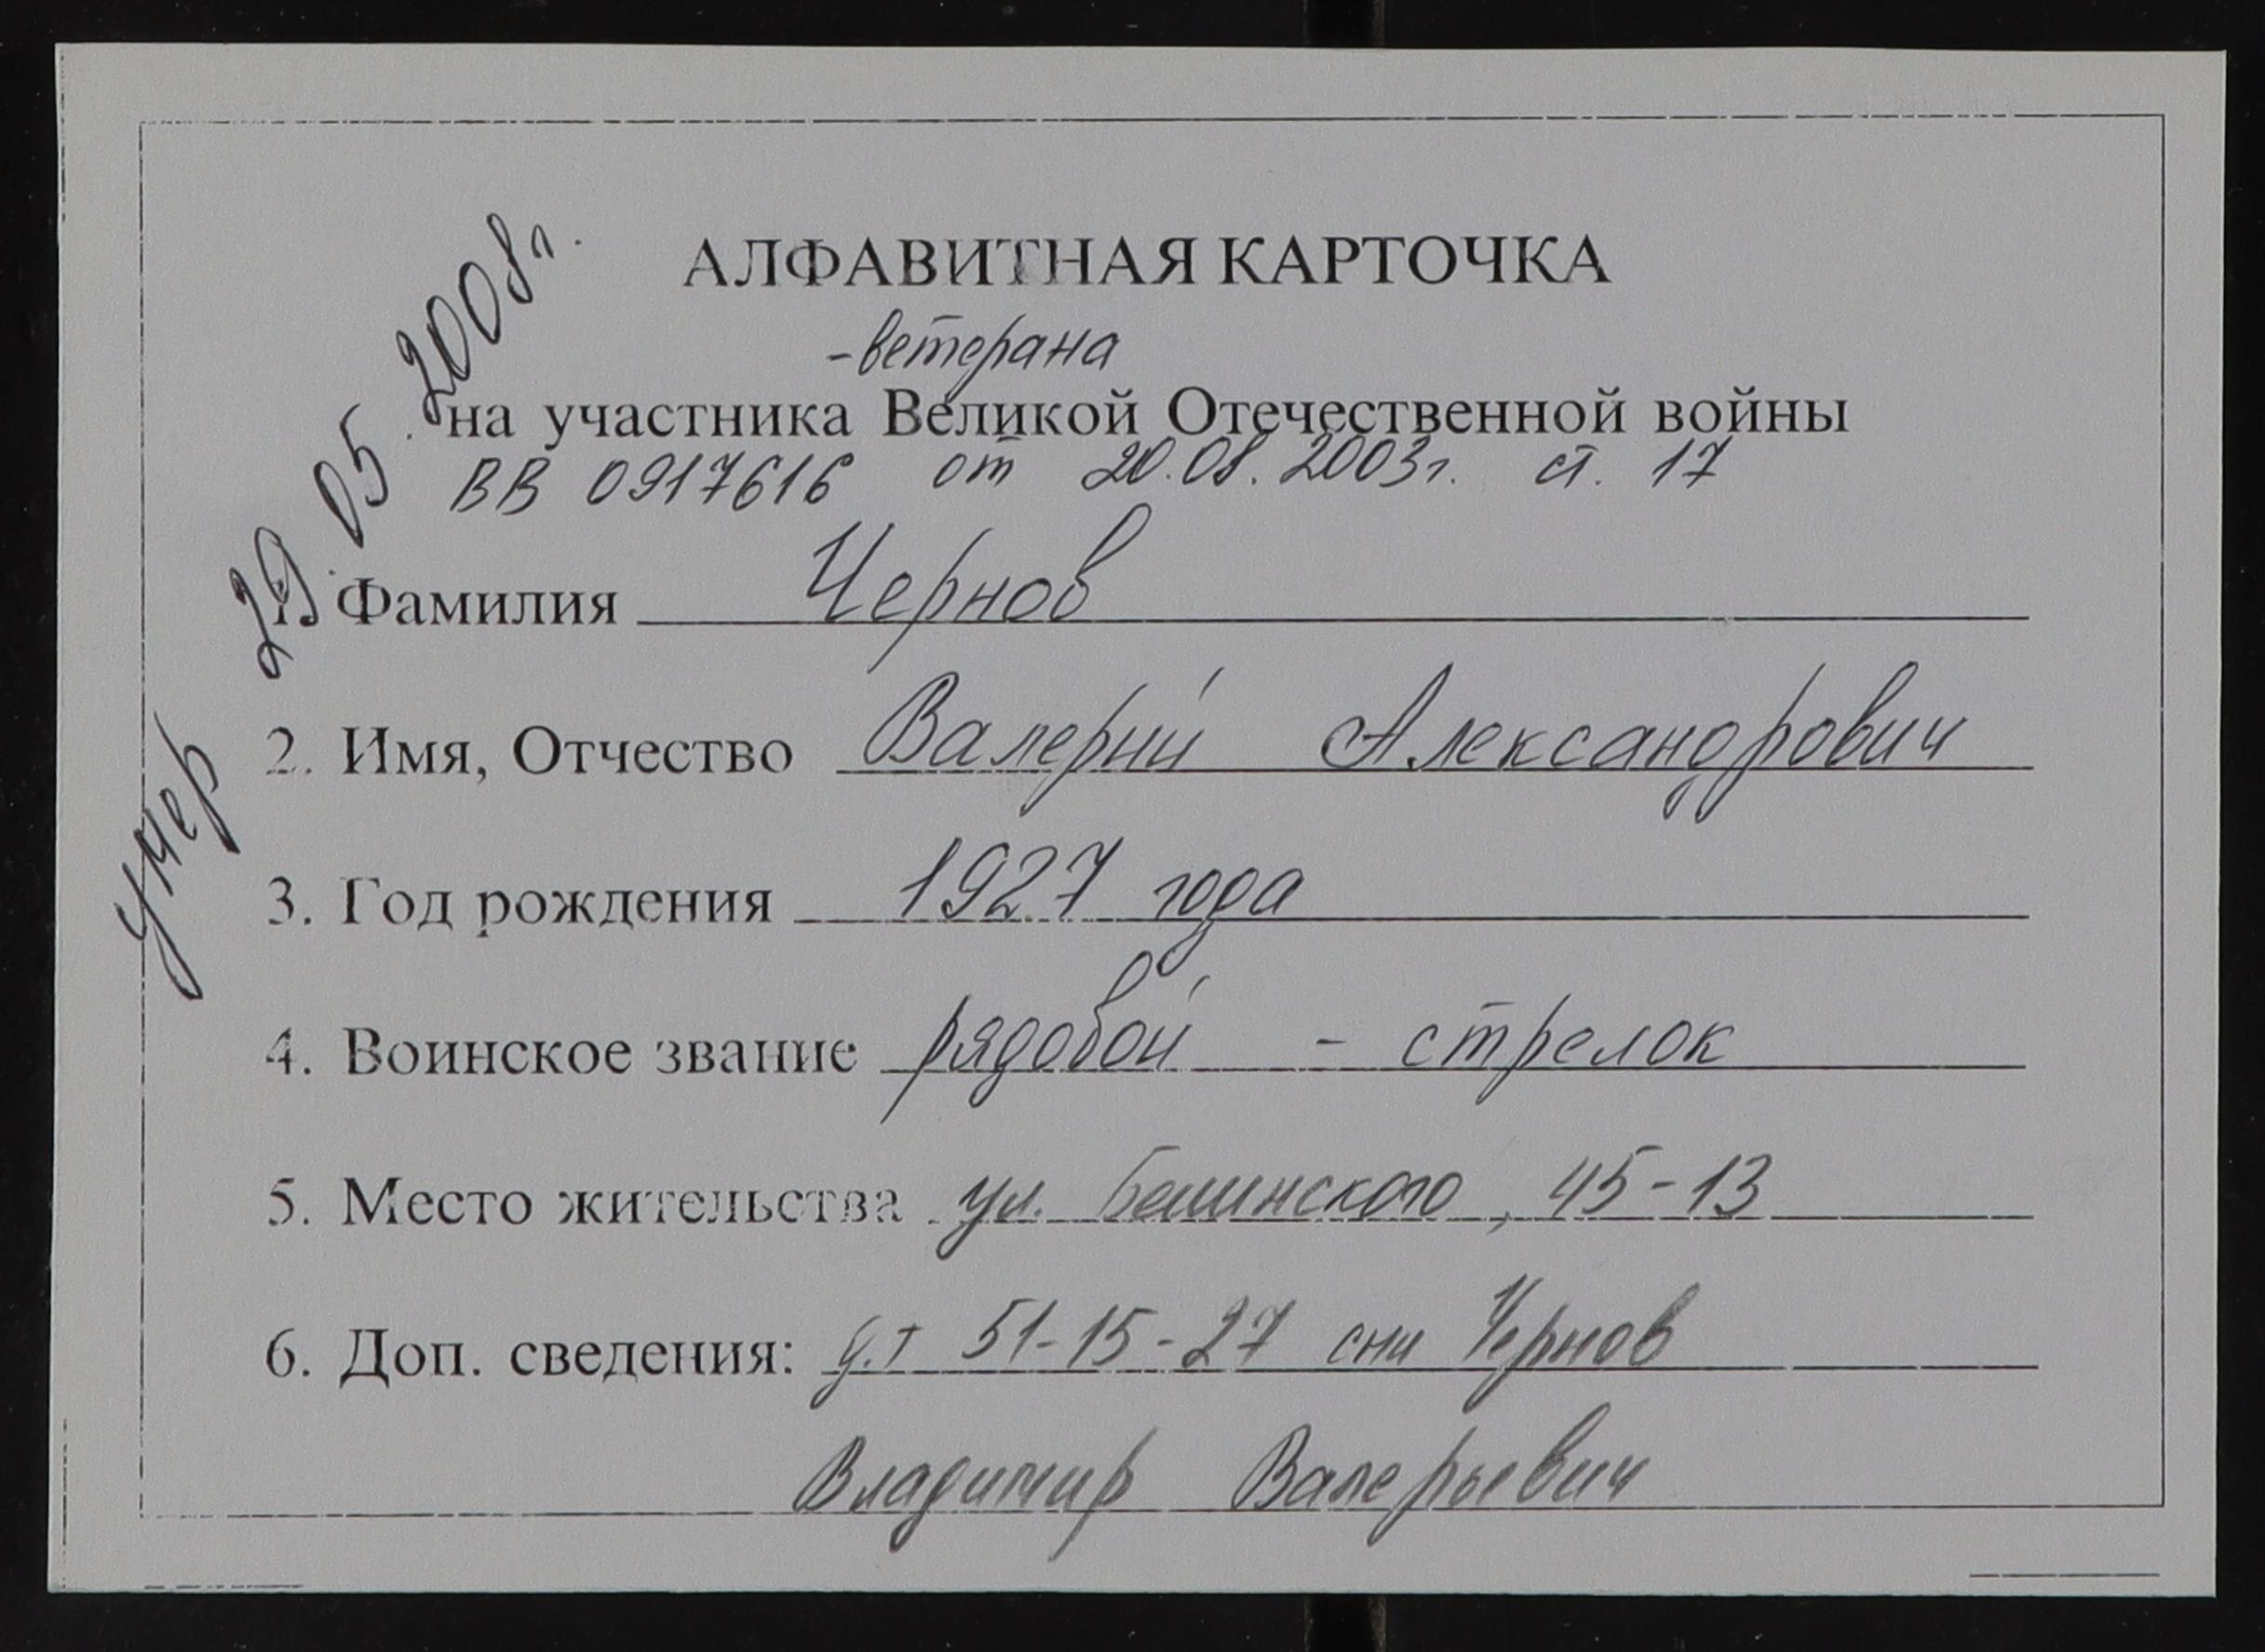 АЛФАВИТНАЯ КАРТОЧКА
-ветерана
на участника Великой Отечественной войны
ВВ 0917616 от 20.08.2003г. ст. 17
1. Фамилия Чернов
2. Имя, Отчество Валерий Александрович
3. Год рождения 1927 года
4. Воинское звание рядовой - стрелок
5. Место жительства ул. Белинского, 45-13
6. Доп. сведения: д.т 51-15-27 Чернов
Владимир Валерьевич
умер 29.05.2008г.